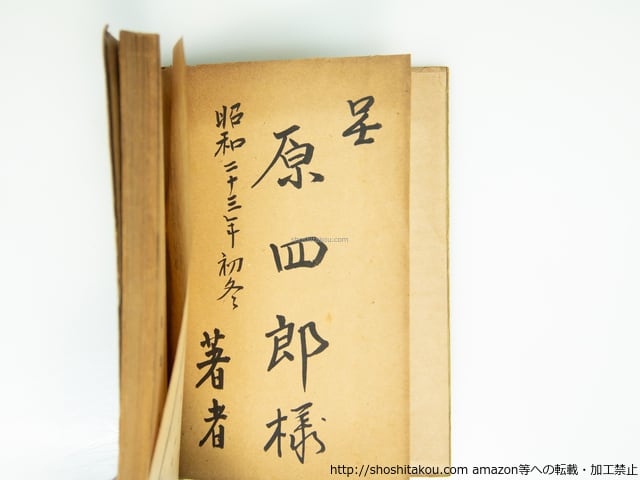 呈
原四郎様
昭和二十三年初冬
著者
shoshitakou.com
http://shoshitakou.com amazon等への転載・加工禁止